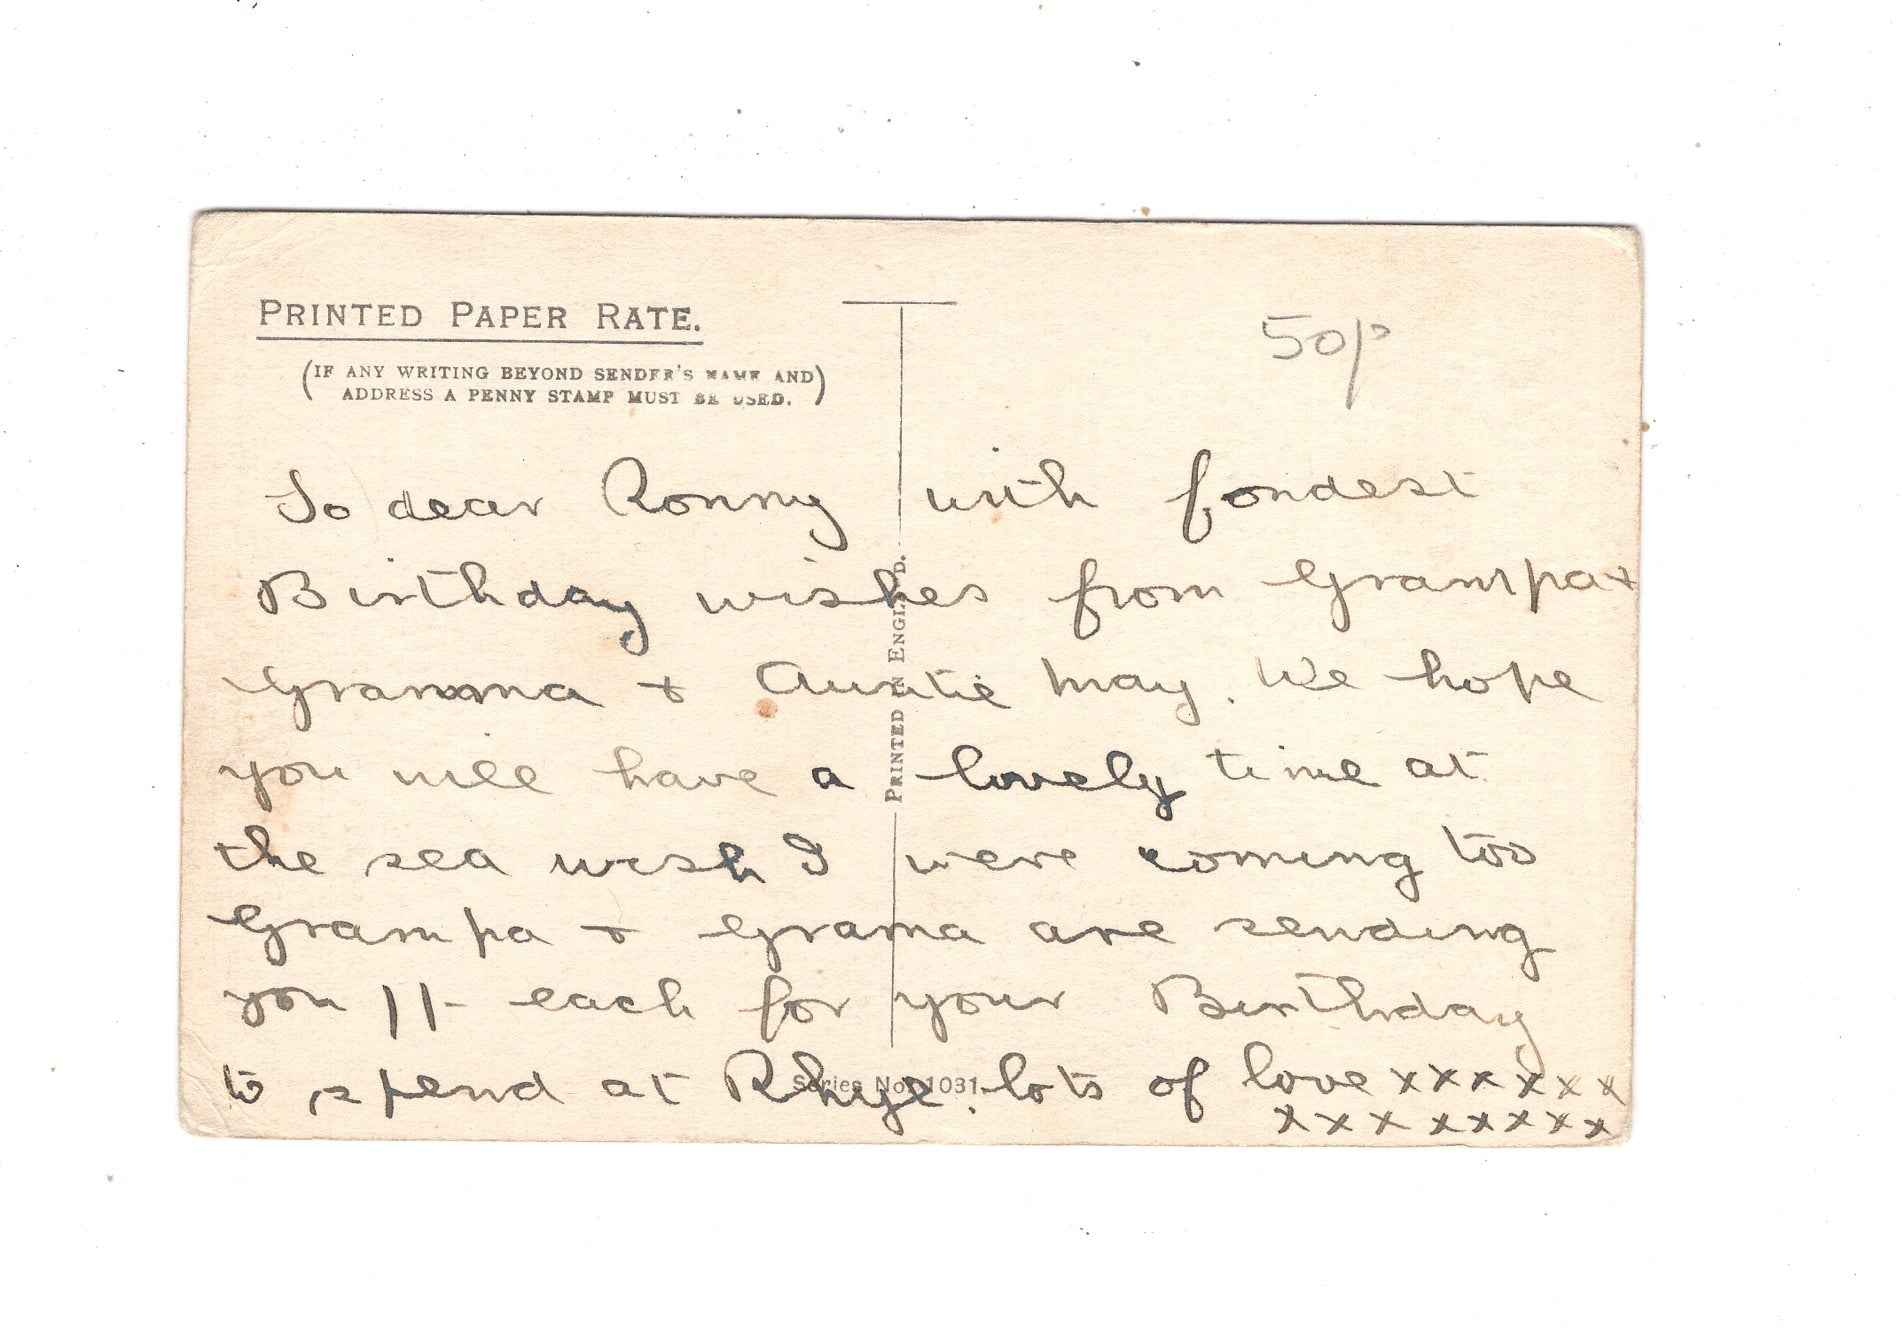 PRINTED PAPER RATE.
50p
(IF ANY WRITING BEYOND SENDER'S NAME AND
ADDRESS A PENNY STAMP MUST BE USED.)
To dear Ronny with fondest
Birthday wishes from Grampa +
Gramma + Auntie May. We hope
you will have a lovely time at
the sea wish I were coming too
Grampa + Grama are sending
you 1/- each for your Birthday
to spend at Rhye. lots of love xxxxxx
xxxxxxxx
PRINTED IN ENGLAND.
Series No. 1031.